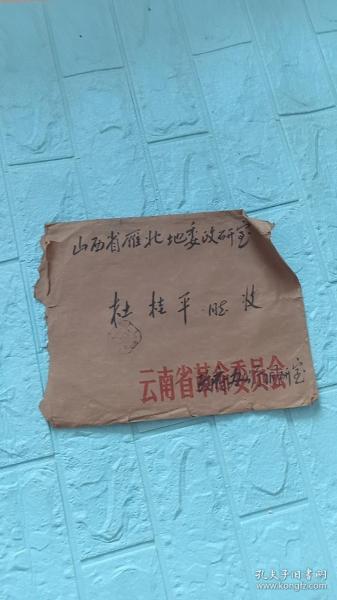 山西省雁北地委政研室
杜桂平 收
云南省革命委员会
研室
孔夫子旧书网
www.kongfz.com